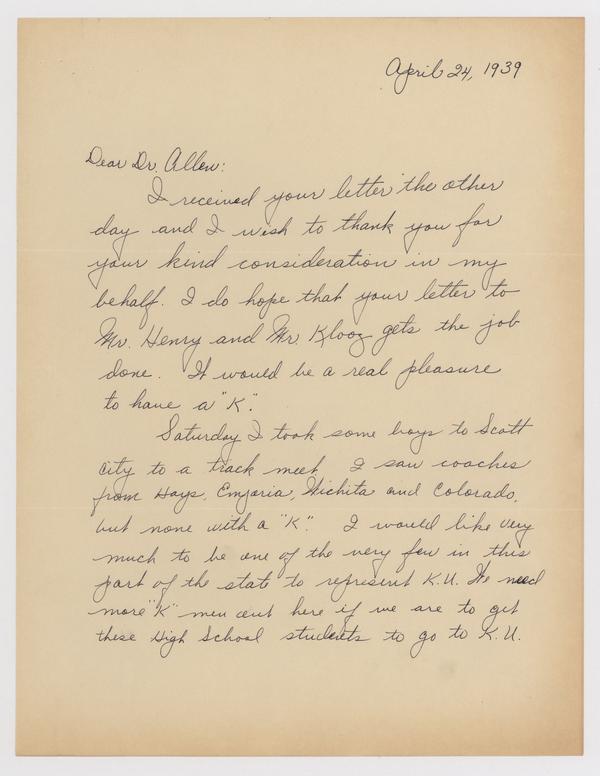 April 24, 1939
Dear Dr. Allen:
I received your letter the other
day and I wish to thank you for
your kind consideration in my
behalf. I do hope that your letter to
Mr. Henry and Mr. Klooz gets the job
done. It would be a real pleasure
to have a "K".
Saturday I took some boys to Scott
City to a track meet. I saw coaches
from Hays, Emporia, Wichita and Colorado,
but none with a "K". I would like very
much to be one of the very few in this
part of the state to represent K.U. We need
more "K" men out here if we are to get
these High School students to go to K.U.